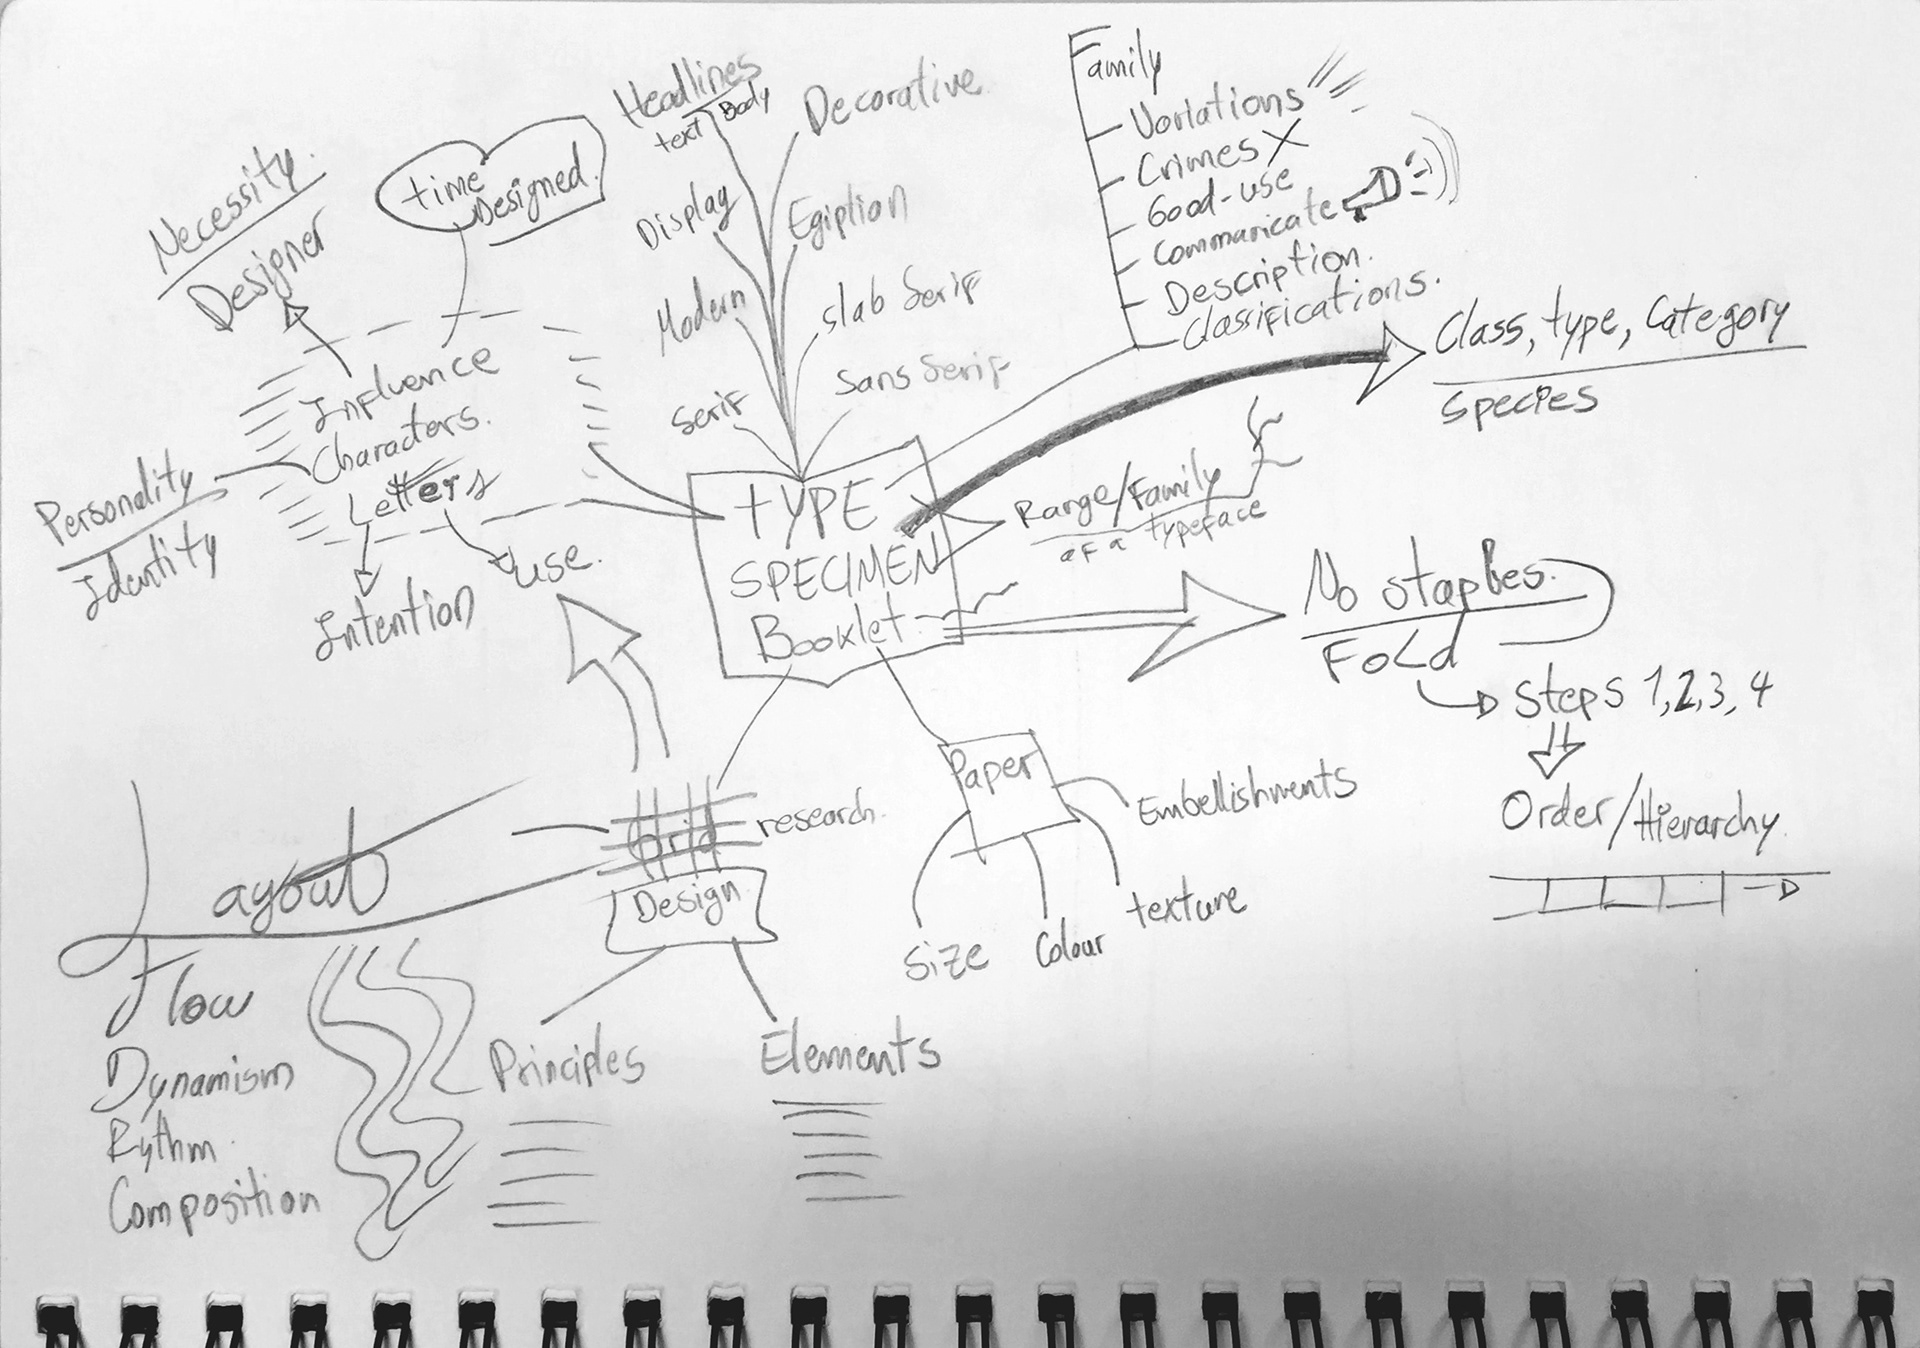 Necessity.
Designer
time
Designed.
Influence
Characters.
Letters
Personality
Identity
Intention
use.
Headlines
text Body
Decorative
Display
Egiption
Modern
slab Serif
Serif
Sans Serif
Family
Variations
Crimes X
Good-use
Communicate
Description.
Classifications.
Class, type, Category
Species
TYPE
SPECIMEN
Booklet
Range/Family
of a typeface
No staples.
Fold
Steps 1,2,3,4
Order/Hierarchy
Paper
Embellishments
texture
Colour
Size
Grid
research.
Design
Principles
Elements
Layout
Flow
Dynamism
Rythm
Composition